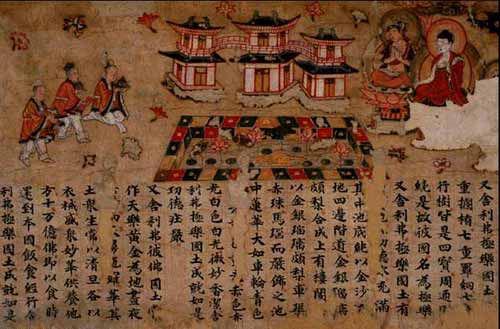 又舍利弗極樂國土
重攔楯七重羅網七
行樹皆是四寶周通
繞是故彼國名為極樂
又舍利弗極樂國土有
充滿
其中池底純以金沙
地四邊階道金銀瑠璃
頗梨合成上有樓閣
以金銀瑠璃頗梨車
赤珠馬瑙而嚴飾之池
中蓮華大如車輪青色
赤色赤
光白色白光微妙香潔舍
利弗極樂國土成就如是
功德莊嚴
又舍利弗彼佛國土
作天樂黃金為地晝夜
華其
土眾生常以清旦各以
衣裓盛眾妙華供養他
方十万億佛即以食時
還到本國飯食經行舍
利弗極樂國土成就如是